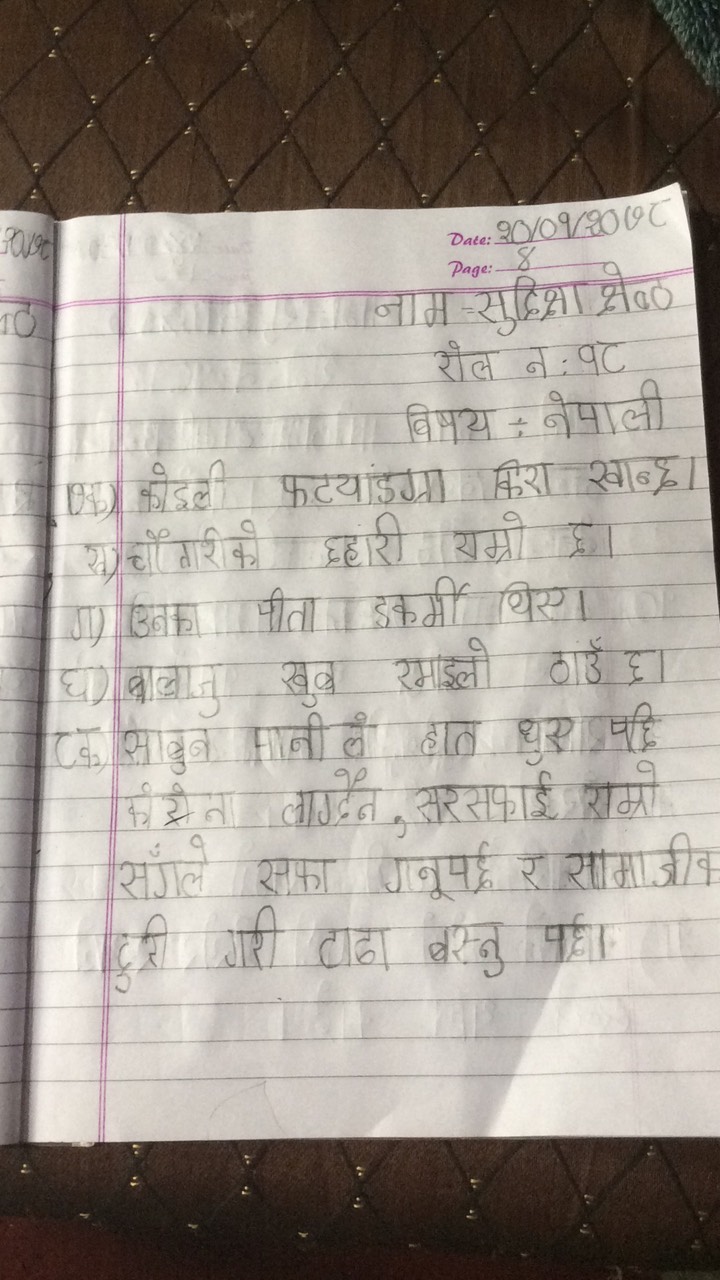 Date: २०/०१/२०७८
Page: ४
नाम = सुदिक्षा श्रेष्ठ
रोल न : १८
विषय ÷ नेपाली
७क) कोइली फटयाङग्रा किरा खान्छ।
ख) चौतारीको छहारी राम्रो छ।
ग) उनका पीता डकर्मी थिए।
घ) बालाजु खुब रमाइलो ठाउँ छ।
८क) साबुन पानी ले हात धुए पछि
कोरोना लाग्दैन, सरसफाई राम्रो
सँगले सफा गनूपर्छ र सामाजीक
दुरी गरी टाढा बस्नु पर्छ।